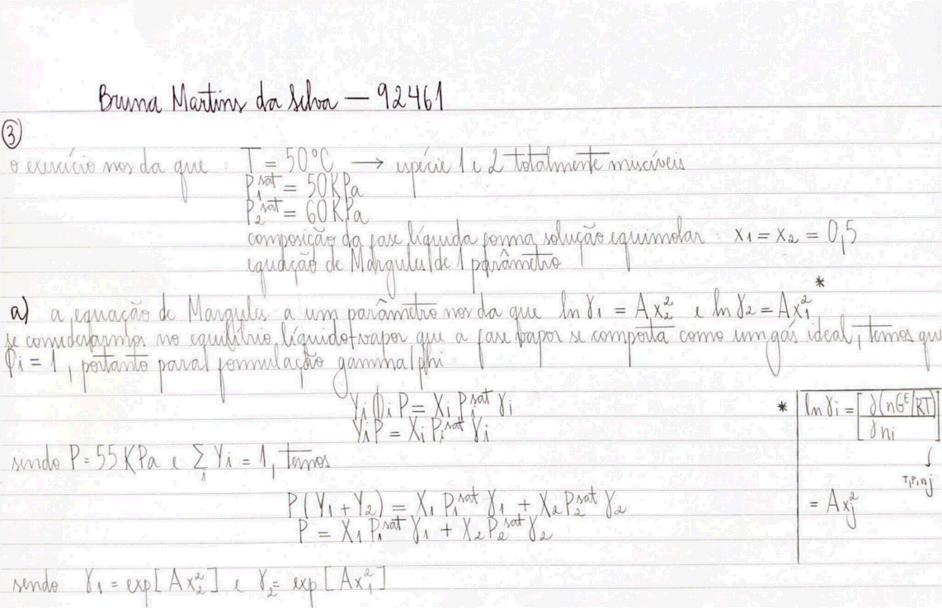 Bruna Martins da Silva — 92461
③
o exercício nos da que : T = 50°C → espécie 1 e 2 totalmente miscíveis
P₁ˢᵃᵗ = 50KPa
P₂ˢᵃᵗ = 60KPa
composição da fase líquida forma solução equimolar : x₁ = x₂ = 0,5
equação de Margules de 1 parâmetro
a) a equação de Margules a um parâmetro nos da que ln γ₁ = Ax₂² e ln γ₂ = Ax₁² *
se considerarmos no equilíbrio líquido-vapor que a fase vapor se comporta como um gás ideal, temos que
ϕi = 1, portanto para formulação gamma/phi
Yi ϕi P = Xi Piˢᵃᵗ γi
Yi P = Xi Piˢᵃᵗ γi
* ln γi = [∂(nGᴱ/RT)/∂ni] T,P,nj
sendo P = 55 KPa e Σ Yi = 1, temos
P(Y₁ + Y₂) = X₁ P₁ˢᵃᵗ γ₁ + X₂ P₂ˢᵃᵗ γ₂
= Axj²
P = X₁ P₁ˢᵃᵗ γ₁ + X₂ P₂ˢᵃᵗ γ₂
sendo γ₁ = exp[Ax₂²] e γ₂ = exp[Ax₁²]